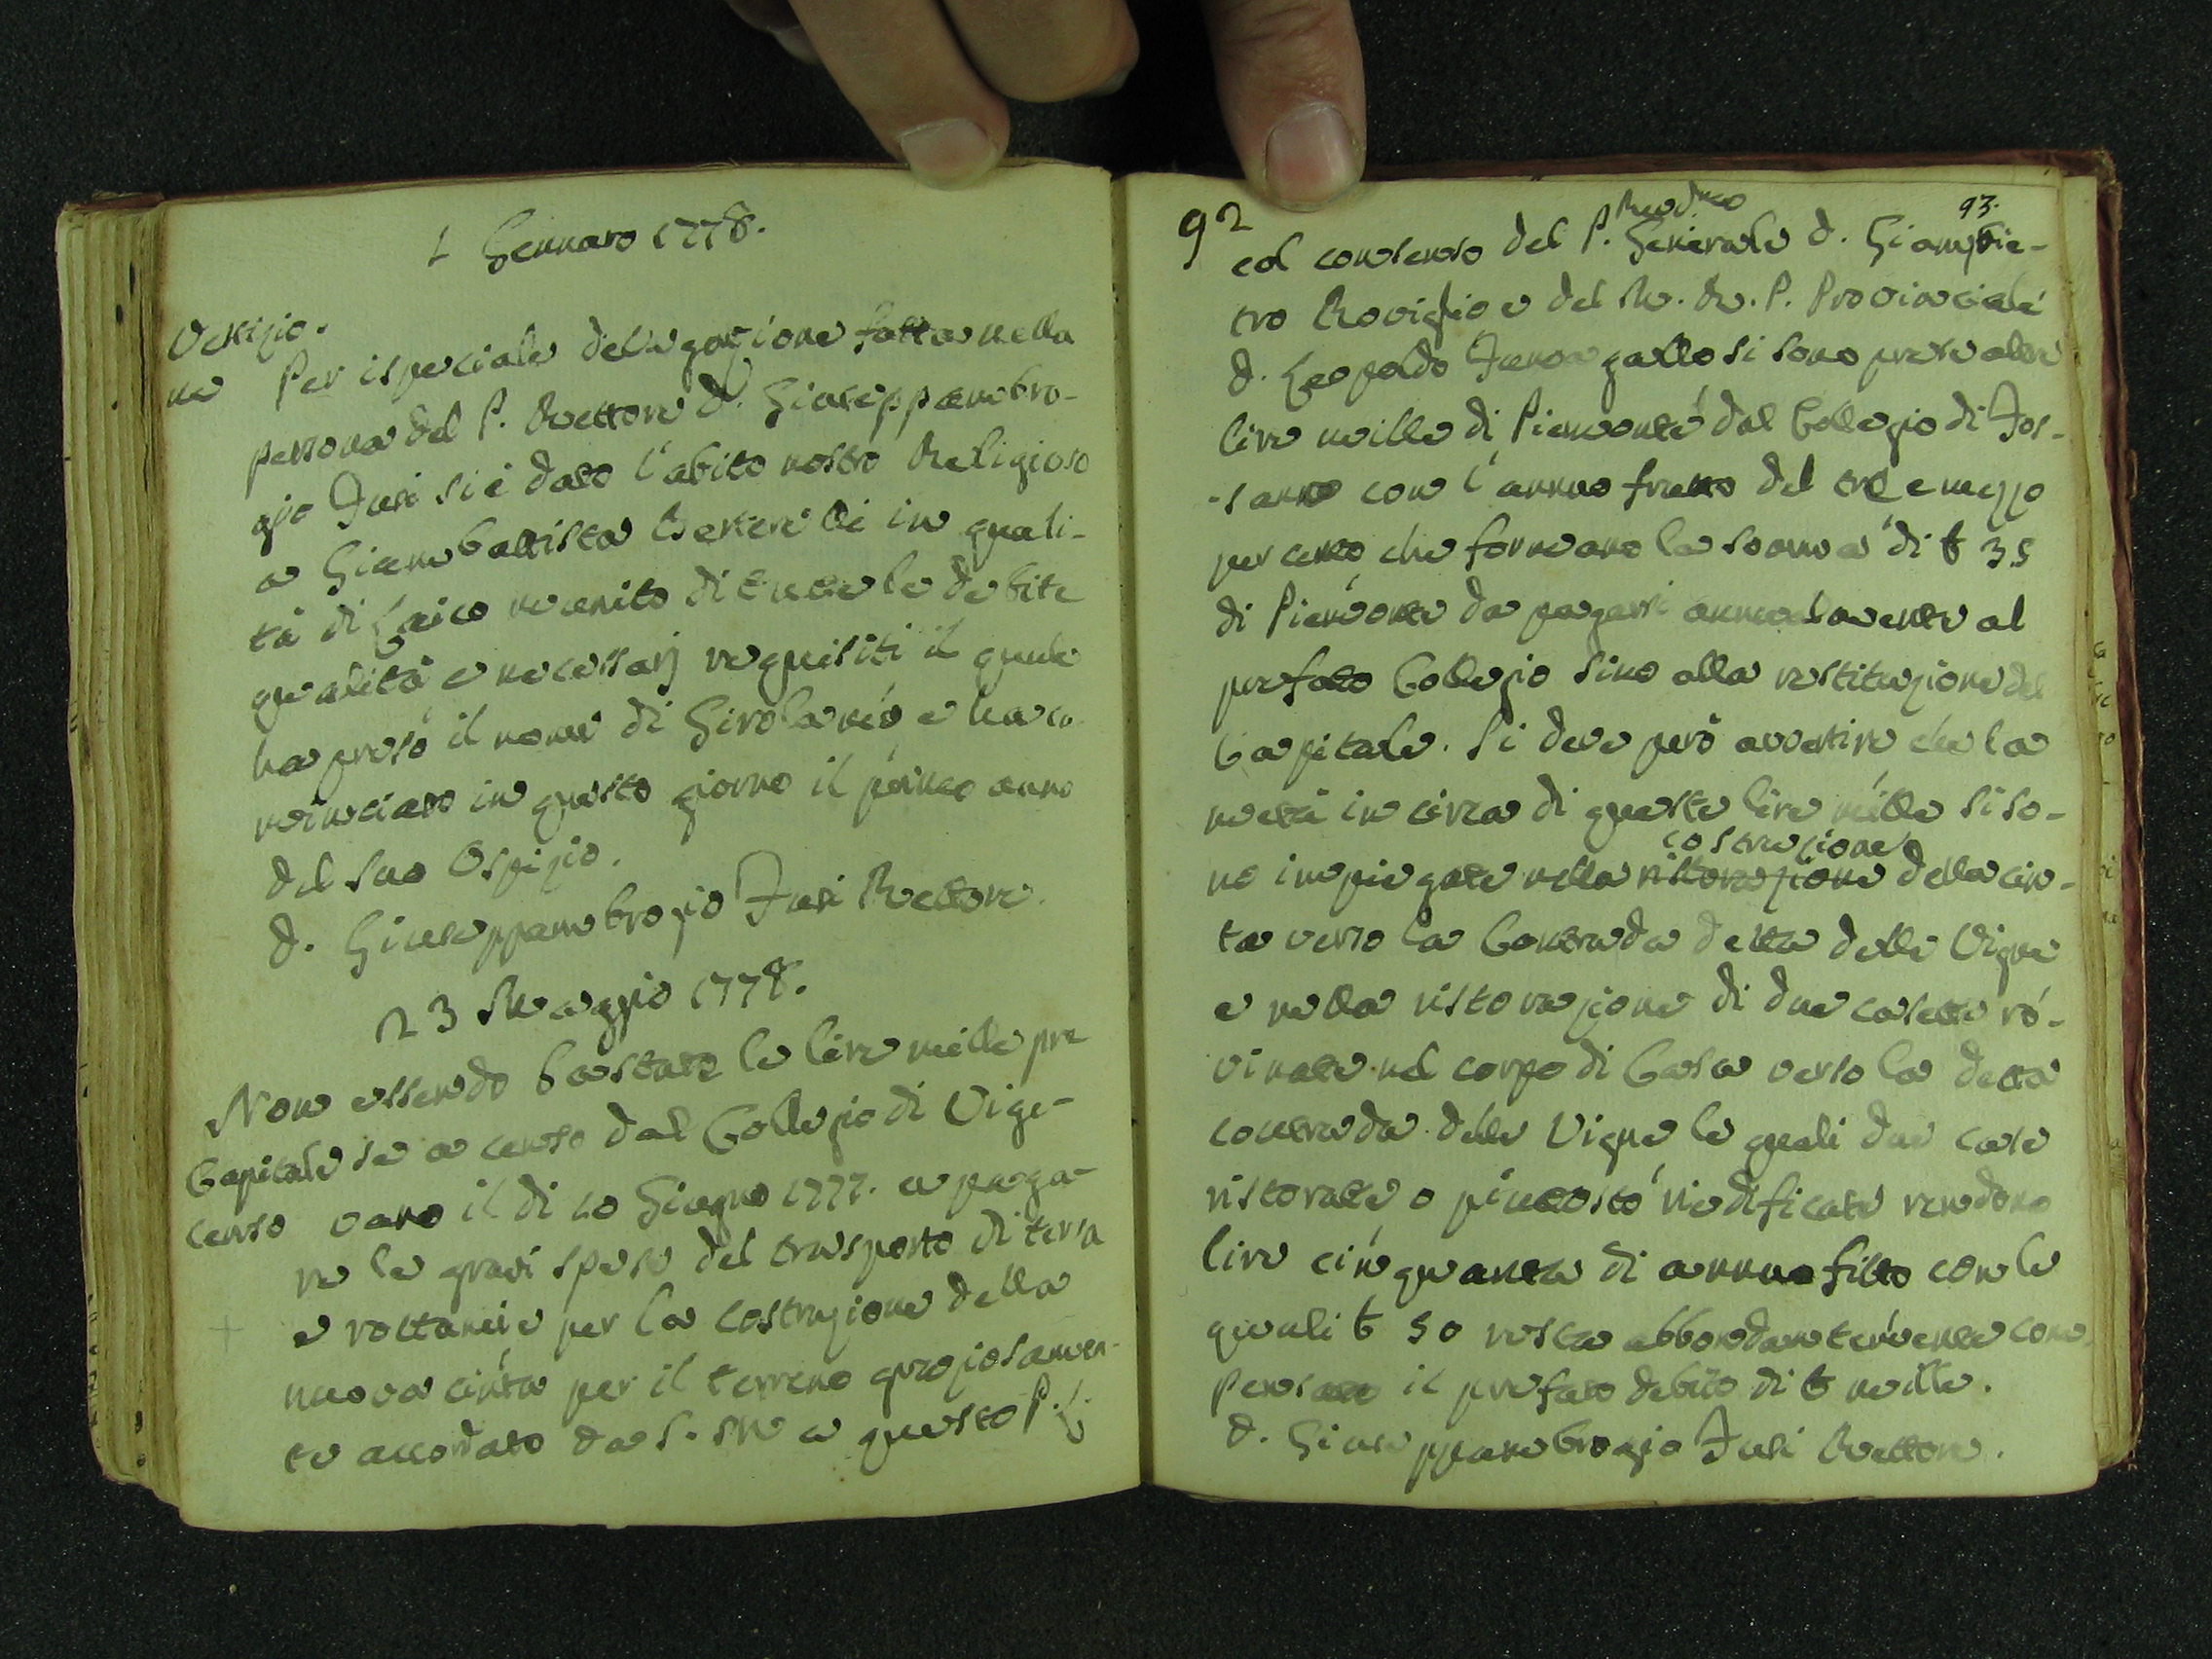 1 Gennaro 1778.
Vestizio-
ne Per ispeciale delegazione fatta nella
persona del P. Rettore D. Giuseppambro-
gio Fusi si è dato l'abito nostro Religioso
a Giambattista in quali-
tà di Laico munito di tutte le debite
qualità e necessarj requisiti il quale
ha preso il nome di Girolamo e ha co-
minciato in questo giorno il primo anno
del suo Ospizio.
D. Giuseppambrogio Fusi Rettore.
23 Maggio 1778.
Non essendo bastate le lire mille pre
Capitale se a censo dal Collegio di Vige-
censo vano il dì 10 Giugno 1777. a paga-
re le gravi spese del trasporto di terra
e rottami e per la costruzione della
nuova cinta per il terreno graziosamen-
te accordato da S. M a questo P. L.
92
93.
Revdmo
col consenso del P. Generale D. Giampie-
tro Roviglio e del M. R. P. Provinciale
D. Leopoldo si sono prese altre
lire mille di Piemonte dal Collegio di Fos-
-sano con l'annuo frutto del tre e mezzo
per cento che formano la somma di ₤ 35
di Piemonte da pagarsi annualmente al
prefato Collegio sino alla restituzione del
Capitale. Si deve però avvertire che la
metà in circa di queste lire mille si so-
costruzione
no impiegate nella ristorazione della cin-
ta verso la Contrada detta delle Vigne
e nella ristorazione di due casette ro-
vinate nel corpo di Casa verso la detta
contrada delle Vigne le quali due case
ristorate o piuttosto riedificate rendono
lire cinquanta di annuo fitto con le
quali ₤ 50 resta abbondantemente com-
pensato il prefato debito di ₤ mille.
D. Giuseppambrogio Fusi Rettore.